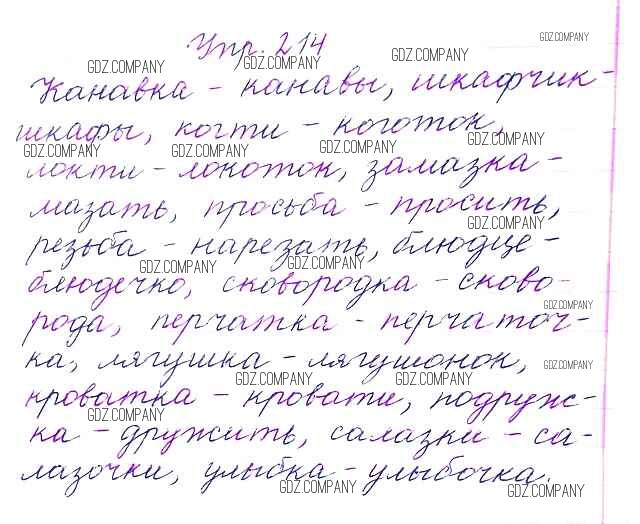 Упр. 214
GDZ.COMPANY
GDZ.COMPANY GDZ.COMPANY GDZ.COMPANY
Канавка - канавы, шкафчик -
шкафы, когти - коготок,
GDZ.COMPANY GDZ.COMPANY GDZ.COMPANY GDZ.COMPANY
локти - локоток, замазка -
мазать, просьба - просить,
GDZ.COMPANY
резьба - нарезать, блюдце -
GDZ.COMPANY GDZ.COMPANY
блюдечко, сковородка - сково-
GDZ.COMPANY
рода, перчатка - перчаточ-
ка, лягушка - лягушонок,
GDZ.COMPANY
GDZ.COMPANY GDZ.COMPANY
кроватка - кровати, подруж-
GDZ.COMPANY
ка - дружить, салазки - са-
лазочки, улыбка - улыбочка.
GDZ.COMPANY GDZ.COMPANY